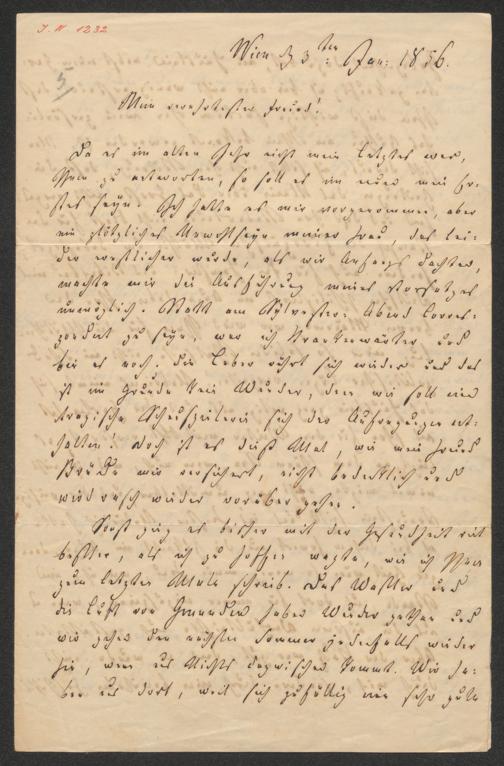 J. N 1232
5
Wien d 3ten: Jan: 1856.
Mein verehrtester Freund!
Da es im alten Jahr nicht mein Letztes war,
Ihnen zu antworten, so soll es im neuen mein Er-
stes seyn. Ich hatte es mir vorgenommen, aber
ein plötzliches Unwohlseyn meiner Frau, das lei-
der ernstlicher wurde, als wir Anfangs dachten,
machte mir die Ausführung meines Vorsatzes
unmöglich. Statt am Sylvester-Abend Corres-
pondent zu seyn, war ich Krankenwärter und
bin es noch. Die Leber rührt sich wieder und das
ist im Grunde kein Wunder, denn wie soll eine
tragische Schauspielerin sich der Aufregungen ent-
halten! Doch ist es dieß Mal, wie mein Freund
Brücke mir versichert, nicht bedenklich und
wird rasch wieder vorüber gehen.
Sonst ging es bisher mit der Gesundheit viel
besser, als ich zu hoffen wagte, wie ich Ihnen
zum letzten Male schrieb. Das Wasser und
die Luft von Gmunden haben Wunder gethan und
wir gehen den nächsten Sommer jedenfalls wieder
hin, wenn uns Nichts dazwischen kommt. Wir ha-
ben uns dort, weil sich zufällig eine sehr gute